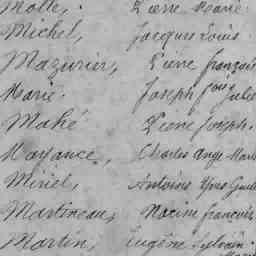 Molle, Pierre Marie.
Michel, Jacques Louis.
Mazurier, Pierre français
Marie. Joseph fois Jules
Mahé Pierre Joseph.
Mayance, Charles Ange Marie
Miriel, Antoine Yves Guill
Martineau, Maxime françois
Martin, Eugène Sylvain.